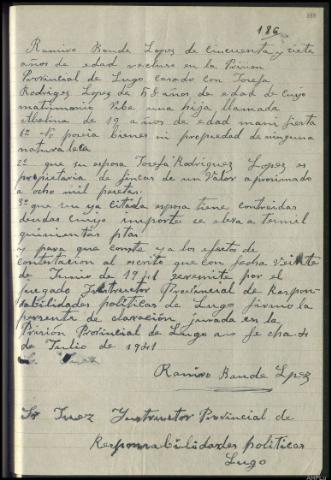 186
Ramiro Bande Lopez de cincuenta y siete
años de edad recluso en la Prision
Provincial de Lugo casado con Josefa
Rodrigez Lopez de 58 años de edad de cuyo
matrimonio Vibe una hija llamada
de 19 años de edad manifiesta
1º No poseia bienes ni propiedad de ninguna
naturaleza
2º que su esposa Josefa Rodriguez Lopez es
propietaria de fincas de un Valor aproximado
a ocho mil pesetas.
3º que su ya citada esposa tiene contraidas
deudas cuyo importe ce eleva a tres mil
quinientas ptas.
y para que conste ya los efectos de
contestacion al escrito que con fecha Veinte
de Junio de 19 el por el
juzgado Instructor Provincial de Respon-
sabilidades politicas de Lugo firmo la
persente de claración jurada en la
Prisión Provincial de Lugo a
de Julio de 1941
Ramiro Bande Lpez
Sr Juez Ynstructor Provincial de
Responsabilidades politicas
Lugo